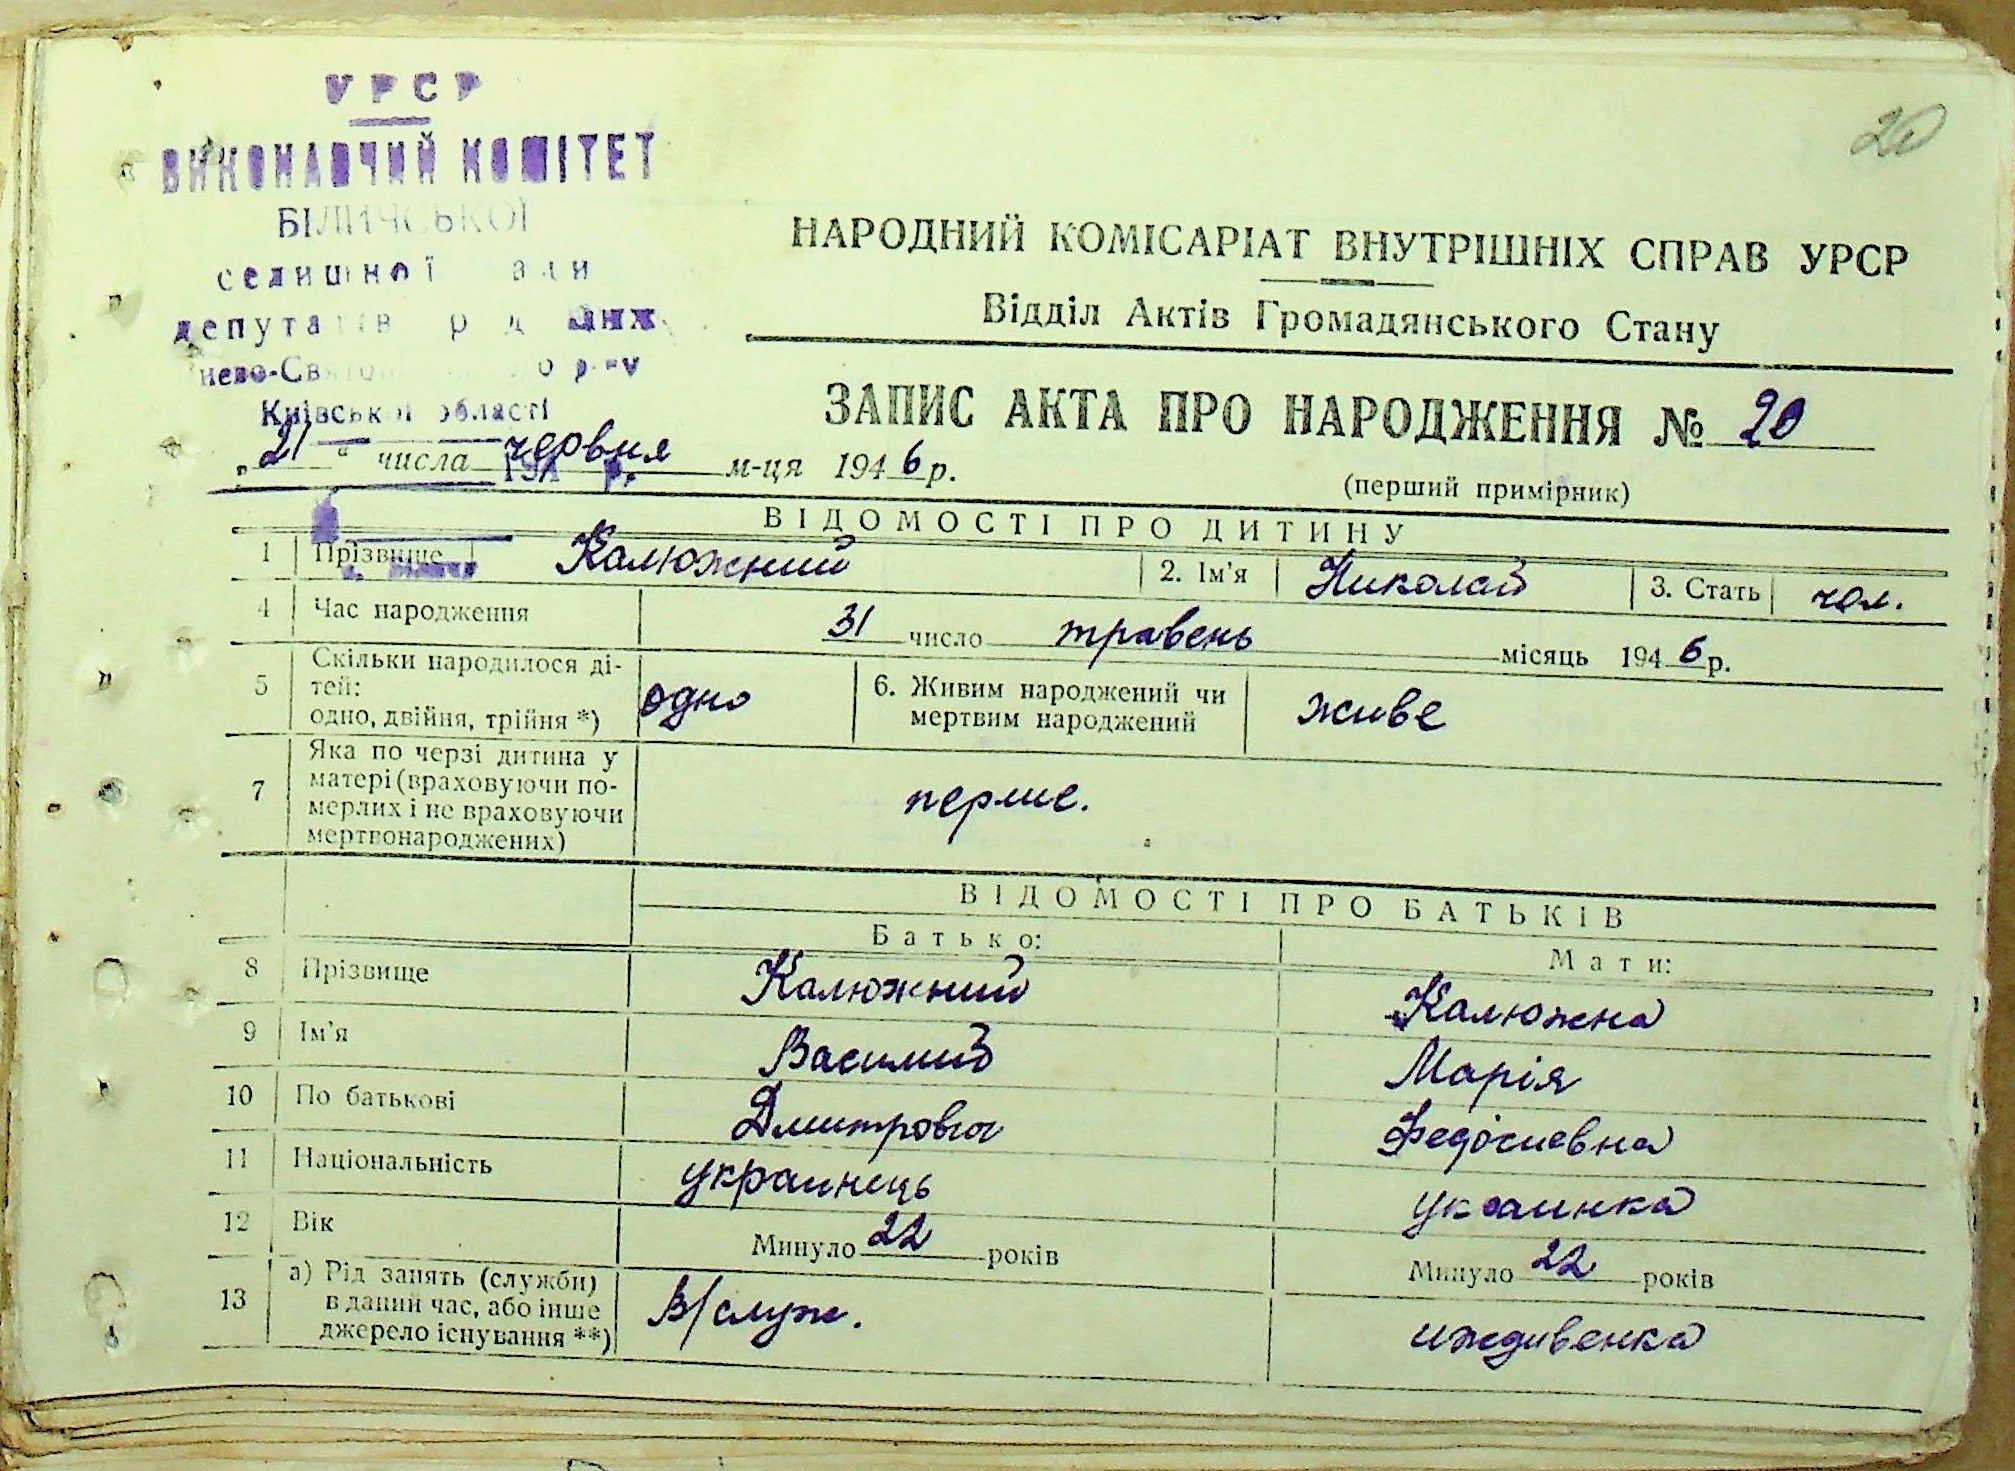 УРСР
20
ВИКОНАВЧИЙ КОМІТЕТ
БІЛИЧСЬКОЇ
селищної ради
депутатів
Київської області
НАРОДНИЙ КОМІСАРІАТ ВНУТРІШНІХ СПРАВ УРСР
Відділ Актів Громадянського Стану
ЗАПИС АКТА ПРО НАРОДЖЕННЯ № 20
„ 21 “ числа червня м-ця 1946 р.
(перший примірник)
ВІДОМОСТІ ПРО ДИТИНУ
1 Прізвище Калюжний 2. Ім'я Николай 3. Стать чол.
4 Час народження 31 число травень місяць 1946 р.
5 Скільки народилося ді-
тей:
одно, двійня, трійня *) одно 6. Живим народжений чи
мертвим народжений живе
7 Яка по черзі дитина у
матері (враховуючи по-
мерлих і не враховуючи
мертвонароджених) перше.
ВІДОМОСТІ ПРО БАТЬКІВ
Батько: Мати:
8 Прізвище Калюжний Калюжна
9 Ім'я Василий Марія
10 По батькові Дмитрович Федосиевна
11 Національність украинець украинка
12 Вік Минуло 22 років Минуло 22 років
13 а) Рід занять (служби)
в даний час, або інше
джерело існування **) В/служ. иждивенка